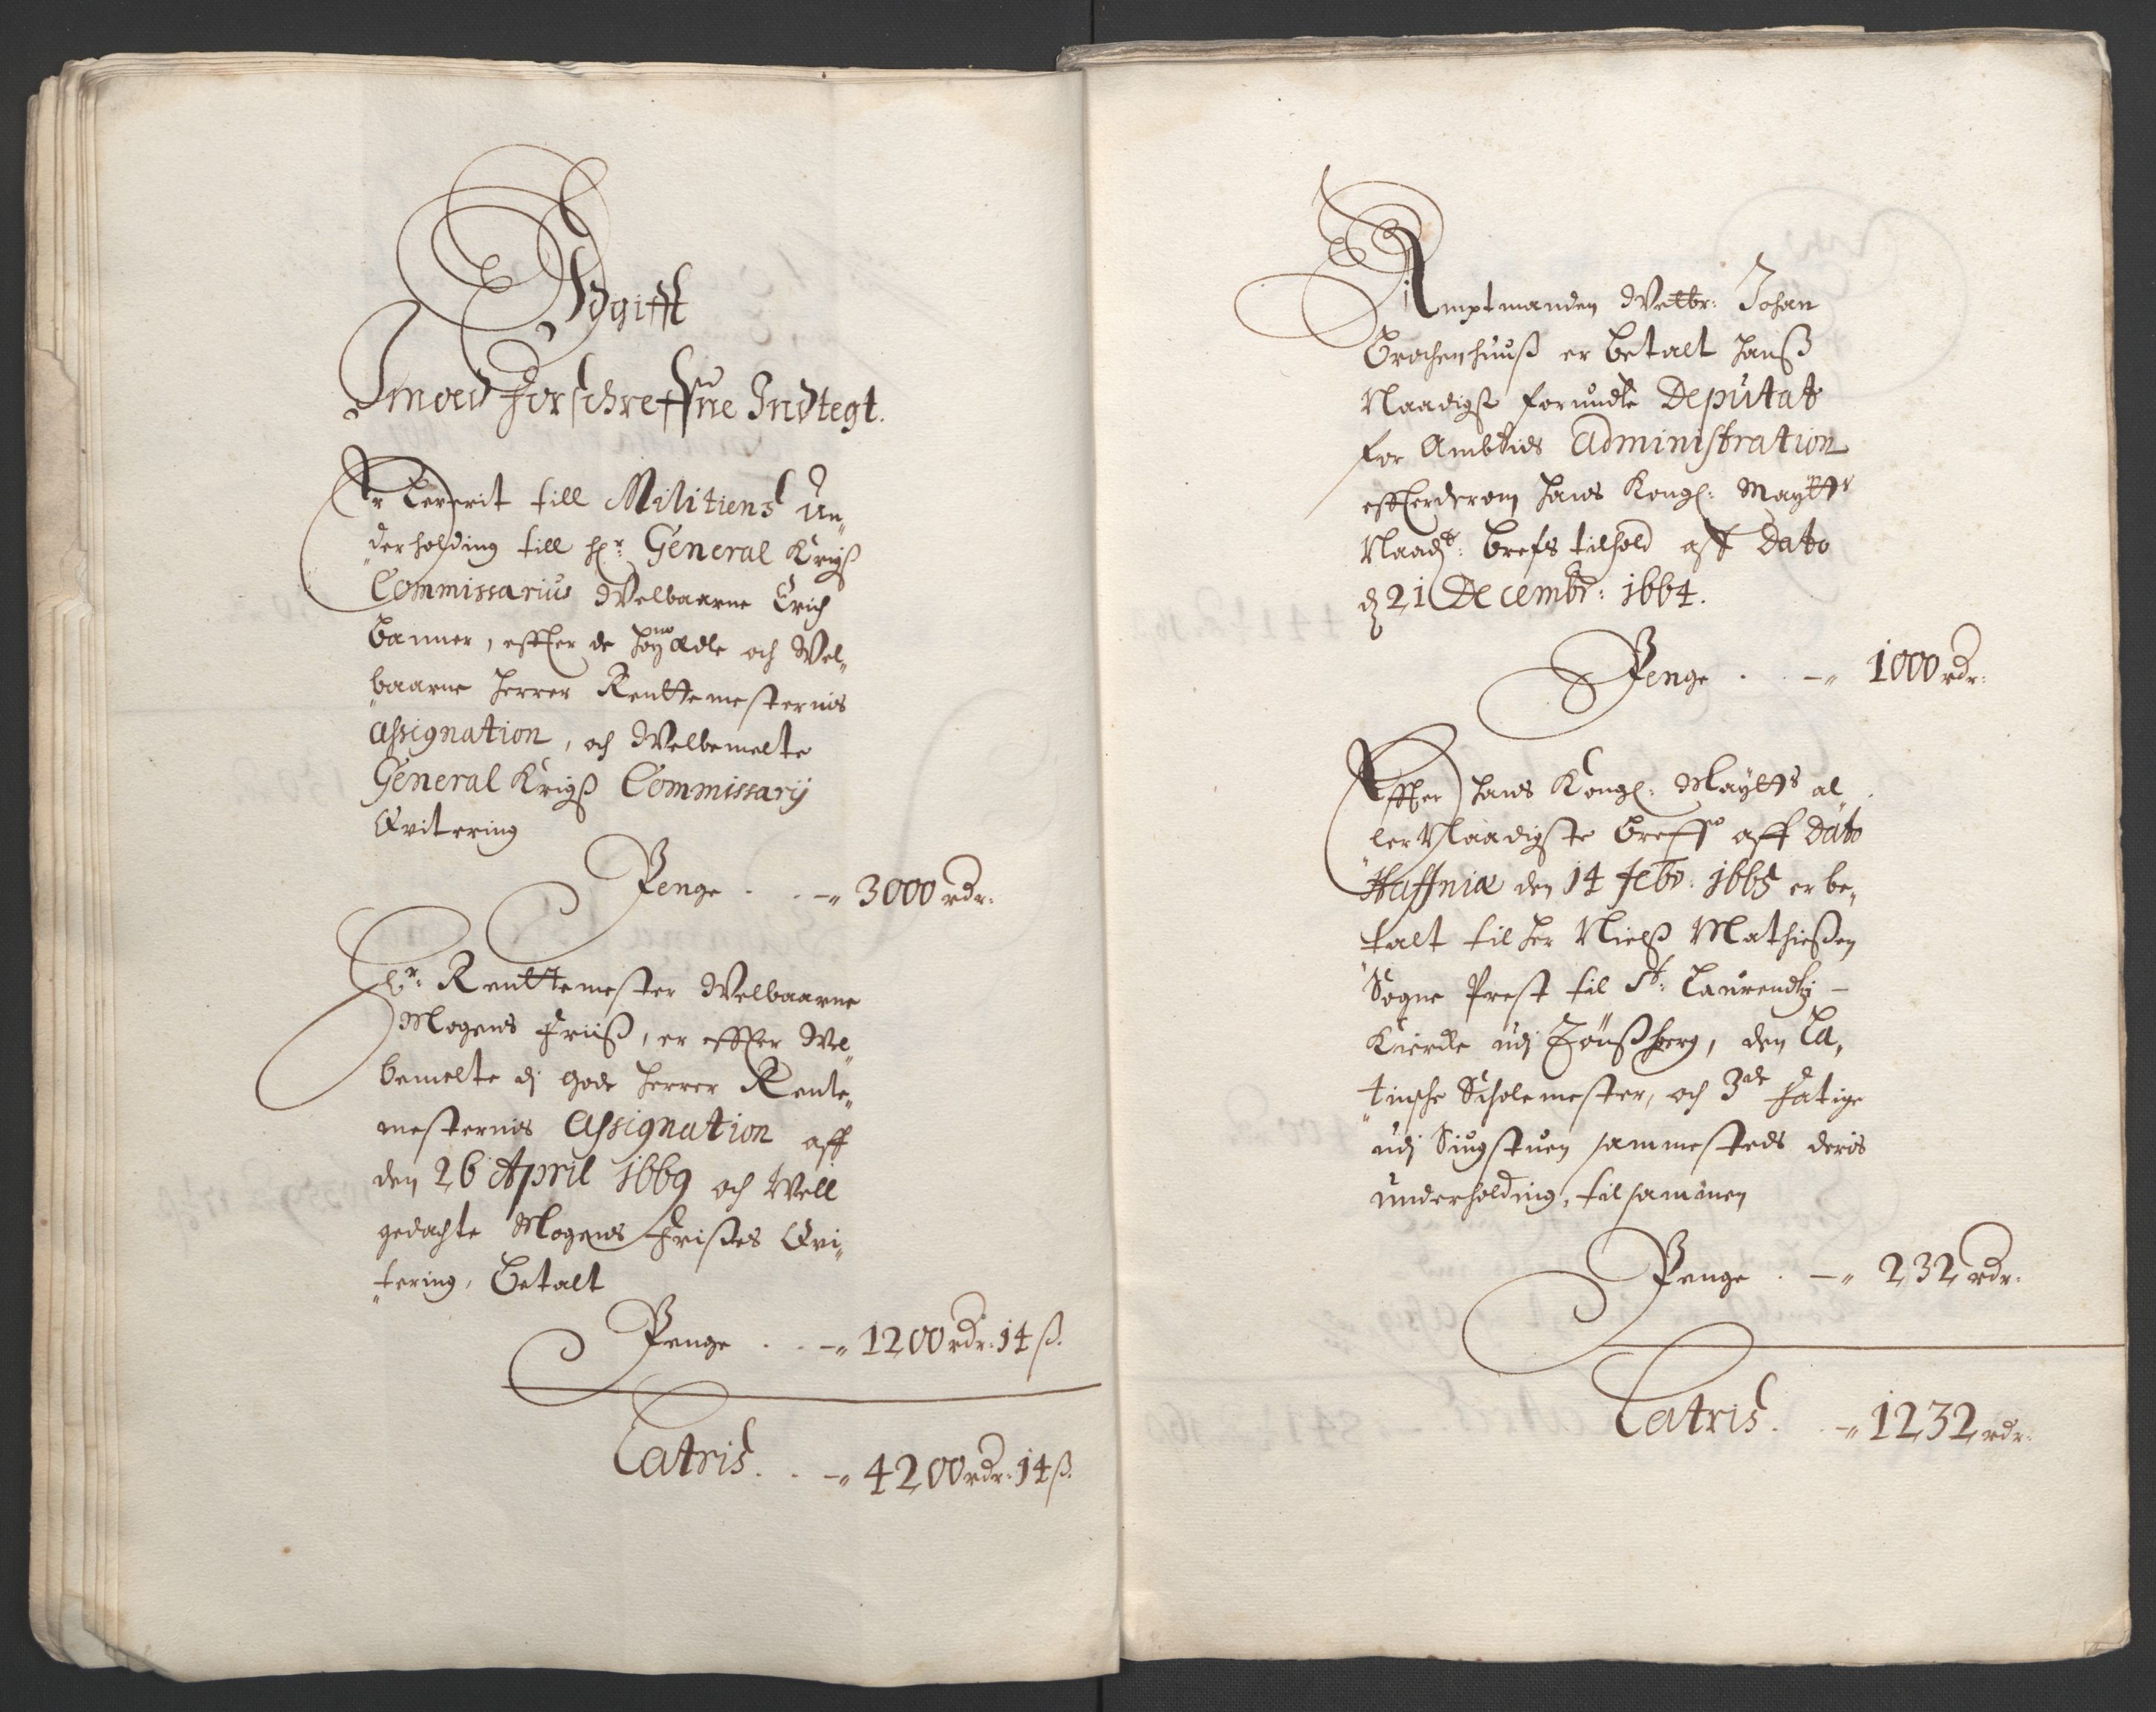 Udgifft
Imod Forschreffne Indtegt.
Er Lefferit till Militiens Un„
derholding till Hr: General Krigß
Commissarius Welbaarne Erich
Banner, effter de Høy ædle och Wel„
baarne Herrer Renttemesternis
Assignation, och Welbemelte
General Krigß Commissarij
Qvitering
Penge . . –„ 3000 rdr.
Hr: Renttemester Welbaarne
Mogens Friiß, er effter Wel„
bemelte di gode Herrer Rente„
mesternis Assignation aff
den 26 April 1669 och Well
gedachte Mogens Frisses Qvi„
tering, Betalt
Penge . . –„ 1200 rdr: 14 ß.
Latris . . –„ 4200 rdr: 14 ß.
Amptmanden Welbr: Johan
Brochenhuuß er Betalt hanß
Naadigst forundte Deputat
for Ambtids Administration
effterdrom hans Kongl: Maytts
Naadst: Brefs tilhold aff Dato
d 21 Decembr: 1664.
Penge . . –„ 1000 rdr:
Effter hans Kongl: Maytts al
ler Naadigste Breff aff Dato
Haffniæ den 14 Febr: 1665 er be„
talt til Her Nielß Mathießen
Sogne Prest til St: Laurendtzj –
Kierche udj Tönßberg, den La„
tinsche Scholemester, och 3de Fatige
udj Siugstuen sammesteds deris
underholding, tilsammen
Penge . –„ 232 rdr:
Latris . . –„ 1232 rdr: